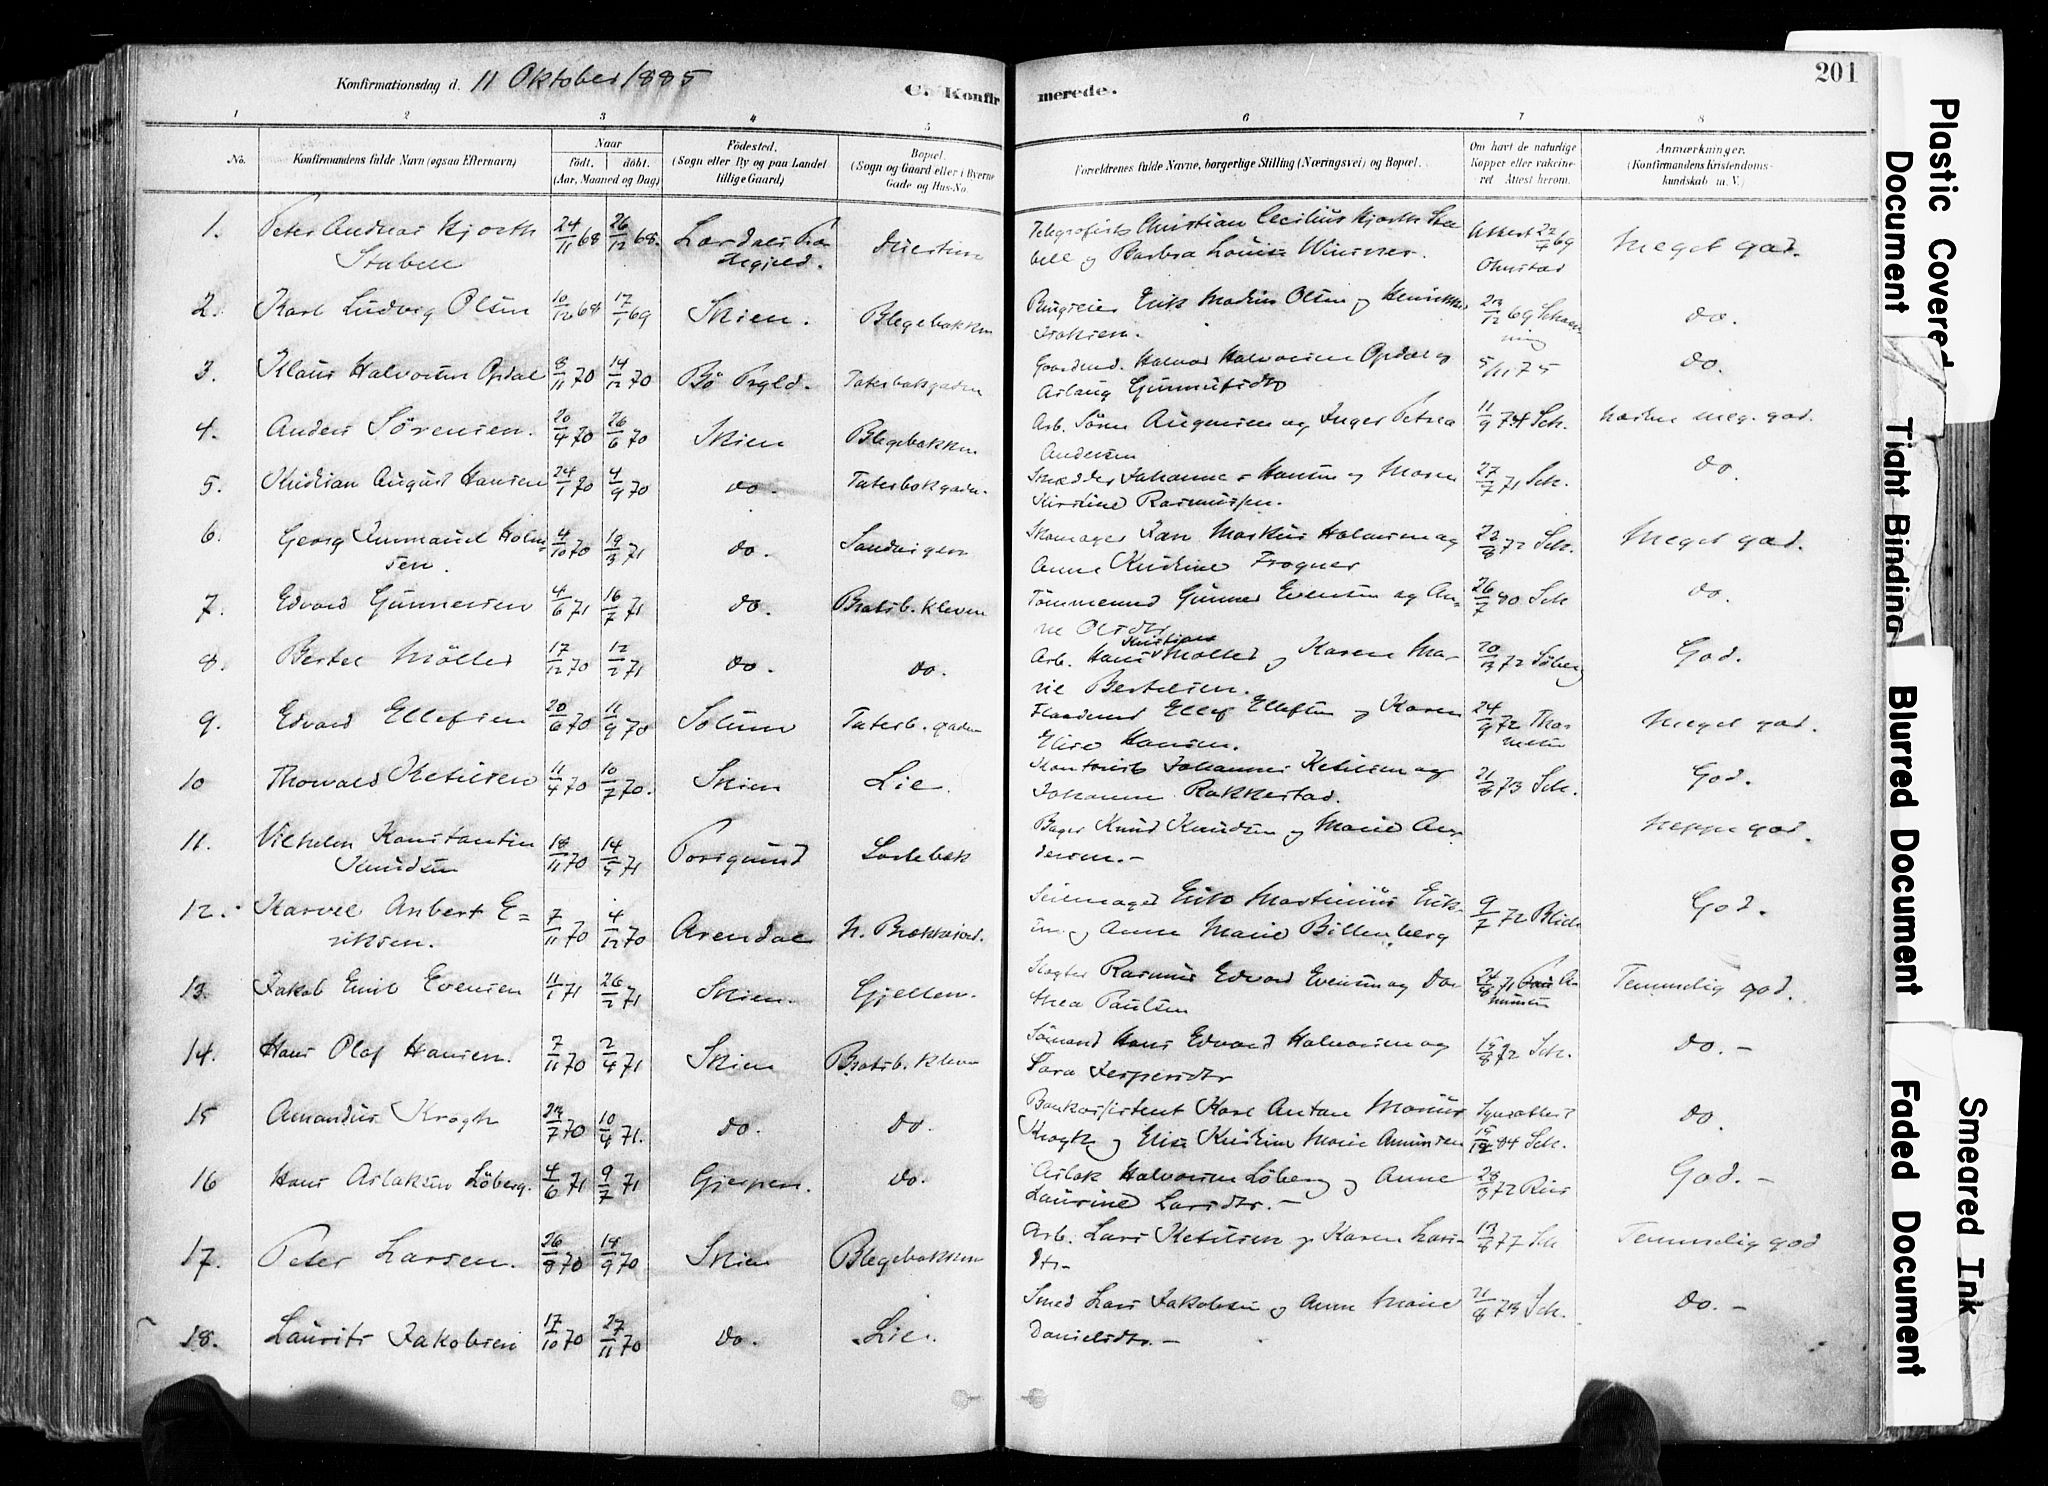 Konfirmationsdag d. 11 Oktober 1885
C. Konfirmerede.
201
1 2 3 4 5 6 7 8
No. Konfirmandens fulde Navn (ogsaa Efternavn) Naar födt. döbt. (Aar, Maaned og Dag) Födested. (Sogn eller By og paa Landet tillige Gaard) Bopæl. (Sogn og Gaard eller i Byerne Gade og Hus-No. Forældrenes fulde Navne, borgerlige Stilling (Næringsvei) og Bopæl. Om havt de naturlige Kopper eller vakcineret. Attest herom. Anmærkninger. (Konfirmandens Kristendomskundskab m. V.)
1. Peter Andreas Hjorth Stabell 24/11 68 26/12 68. Lardals Præstegjeld. Telegrafist Christian Cecilius Hjorth Stabell og Barbra Louise Attest 22/7 69 Meget god.
2. Karl Ludvig Olsen 10/12 68 17/1 69 Skien. Blegebakken Erik Madius Olsen og Isaksen. 12 69 do.
3. Klaus Halvorsen Opdal 8/11 70 14/12 70 Bö Prgld. Taterbækgaden Gaardmd. Halvor Halvorsen Opdal og Aslaug Gunnulfsdtr 5/11 75 do.
4. Anders Sörensen. 20/4 70 26/6 70 Skien Blegebakken Arb. Sören Augensen og Inger Petrea Andersen 11/9 74 Sch. næsten meg. god.
5. Kristian August Hansen 24/1 70 4/9 70 do. Taterbækgaden. Johannes Hansen og Maren Kirstine Rasmussen. 27/7 71 Sch. do.
6. Georg Immanuel Holmsen. 4/10 70 19/3 71 do. Skomager Jan Markus Holmsen og Anne Kristine Frogner 72 Sch. Meget god.
7. Edvard Gunnersen 4/6 71 16/7 71 do. Bratsb. kleven Tömmermd Gunner Evensen og Anne Olsdtr 26/7 80 Sch do.
8. Bertel Möller 17/12 70 12/2 71 do. do. Arb. Hans Kristian Möller og Karen Marie Bertelsen. 20/3 72 Söberg God.
9. Edvard Ellefsen 20/6 70 11/9 70 Solum Taterb. gaden Ellef Ellefsen og Karen Elise Hansen. 24/9 72 Meget god.
10 Thorvald Ketilsen 11/4 70 10/7 70. Skien Lie. Johannes Ketilsen og Johanne Rakkestad. 21/8 73 Sch. God.
11. Vilhelm Konstantin Knudsen 18/11 70 14/5 71 Porsgrund Bager Knud Knudsen og Marie Andersen. - Neppe god.
12. Karvel Anbert Eriksen. 7/11 70 4/12 70 Arendal Seilmager Erik Martinius Eriksen og Anne Marie Billenberg 9/7 72 God.
13. Jakob Emil Evensen 11/1 71 26/2 71 Skien. Gjellen. Slagter Rasmus Edvard Evensen og Dorthea Paulsen 24/8 71 Temmelig god.
14. Hans Olaf Hansen. 7/11 70 2/4 71 Skien Bratsb. kleven Sömand Hans Edvard Halvorsen og Sara Jespersdtr 15/8 72 Sch. do. -
15 Amandus Krogh 7 70 10/4 71. do. do. Bankassistent Karl Anton Marius Krogh og Elise Kristine Marie Amundsen Synsattest 15/12 84 Sch. do.
16 Hans Aslaksen Löberg. 4/6 71 9/7 71 Gjerpen. do. Aslak Halvorsen Löberg og Anne Laurine Larsdtr. - 28/3 72 God. -
17. Peter Larsen. 26/8 70 18/9 70 Skien Blegebakken Arb. Lars Ketilsen og Karen Larsdtr 77 Sch Temmelig god
18. Laurits Jakobsen 17/10 70 27/11 70 do. Lie. Smed Lars Jakobsen og Anne Marie Danielsdtr. - 21/8 73 Sch. do. -
Plastic Covered Document
Tight Binding
Blurred Document
Faded Document
Smeared Ink